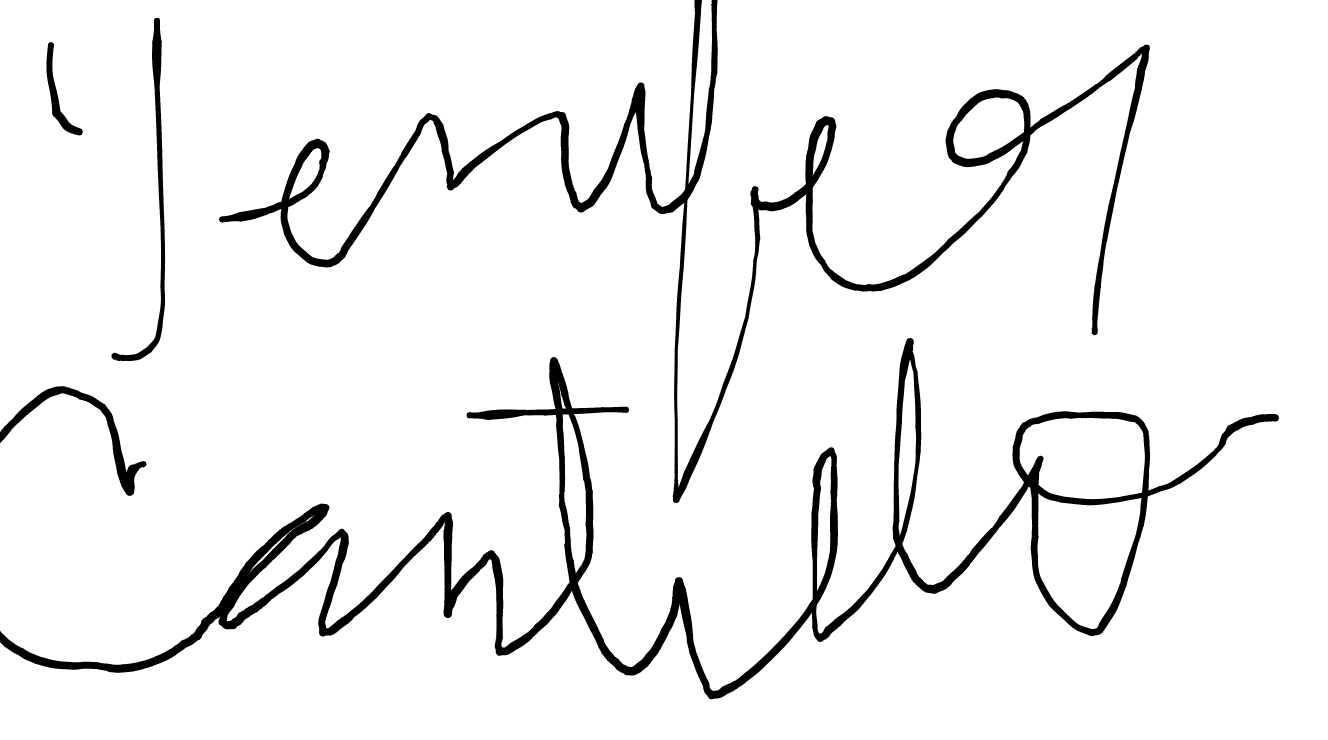 Jenifer
Cantillo